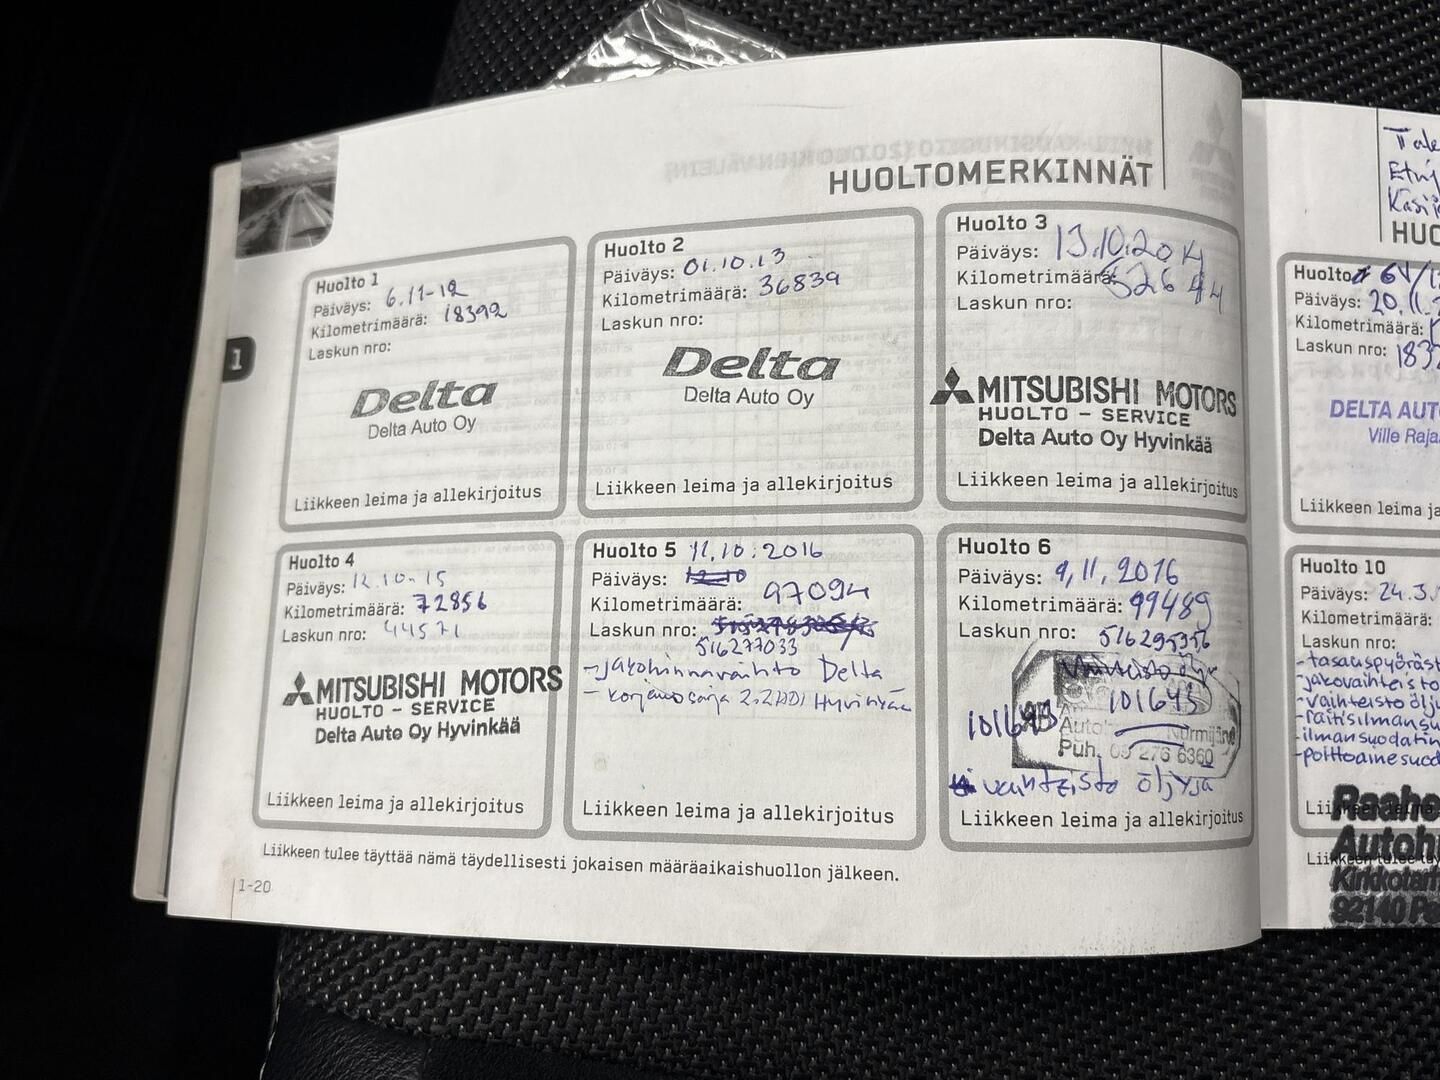 HUOLTOMERKINNÄT
1
Huolto 1
Päiväys: 6.11-12
Kilometrimäärä: 18392
Laskun nro:
Delta
Delta Auto Oy
Liikkeen leima ja allekirjoitus
Huolto 2
Päiväys: 01.10.13
Kilometrimäärä: 36839
Laskun nro:
Delta
Delta Auto Oy
Liikkeen leima ja allekirjoitus
Huolto 3
Päiväys: 13.10.2014
Kilometrimäärä:
Laskun nro:
MITSUBISHI MOTORS
HUOLTO - SERVICE
Delta Auto Oy Hyvinkää
Liikkeen leima ja allekirjoitus
Huolto 4
Päiväys: 12.10-15
Kilometrimäärä: 72856
Laskun nro: 44571
MITSUBISHI MOTORS
HUOLTO - SERVICE
Delta Auto Oy Hyvinkää
Liikkeen leima ja allekirjoitus
Huolto 5 11.10.2016
Päiväys: 12.10
Kilometrimäärä: 97094
Laskun nro:
516277033
- jakohihnavaihto Delta
- korjaussarja 2.2HDI Hyvinkää
Liikkeen leima ja allekirjoitus
Huolto 6
Päiväys: 9.11.2016
Kilometrimäärä: 99489
Laskun nro: 516295356
101643
101643
Nurmijärvi
Puh. 09 276 6360
vaihteisto öljyjä
Liikkeen leima ja allekirjoitus
Liikkeen tulee täyttää nämä täydellisesti jokaisen määräaikaishuollon jälkeen.
1-20
HUO
Huolto
Päiväys: 20.11.
Kilometrimäärä:
Laskun nro: 183
DELTA AUT
Ville Raja
Liikkeen leima ja
Huolto 10
Päiväys: 24.3.
Kilometrimäärä:
Laskun nro:
-tasauspyöräst
-jakovaihteisto
-vaihteistoölju
-raitisilmansu
-ilmansuodatin
-polttoainesuod
Raahe
Autoh
Kirkkotar
92140 Pa